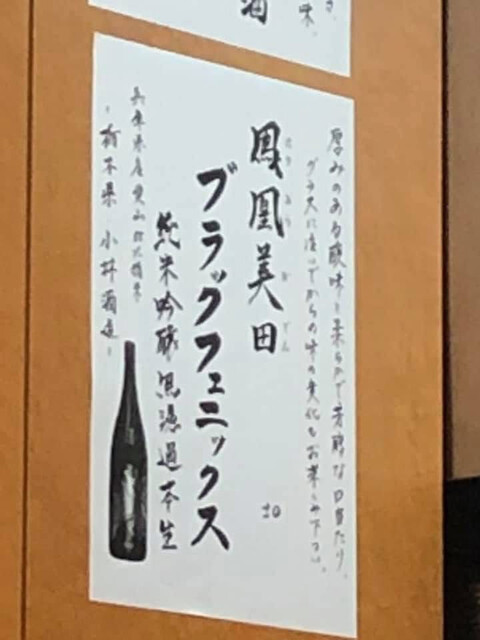 酒
味。
厚みのある酸味と柔らかで芳醇な口当たり。
グラスに注いでからの味の変化もお楽しみ下さい。
鳳凰美田
ほう おう び でん
ブラックフェニックス
±0
純米吟醸 無濾過本生
兵庫県産愛山
・栃木県 小林酒造・